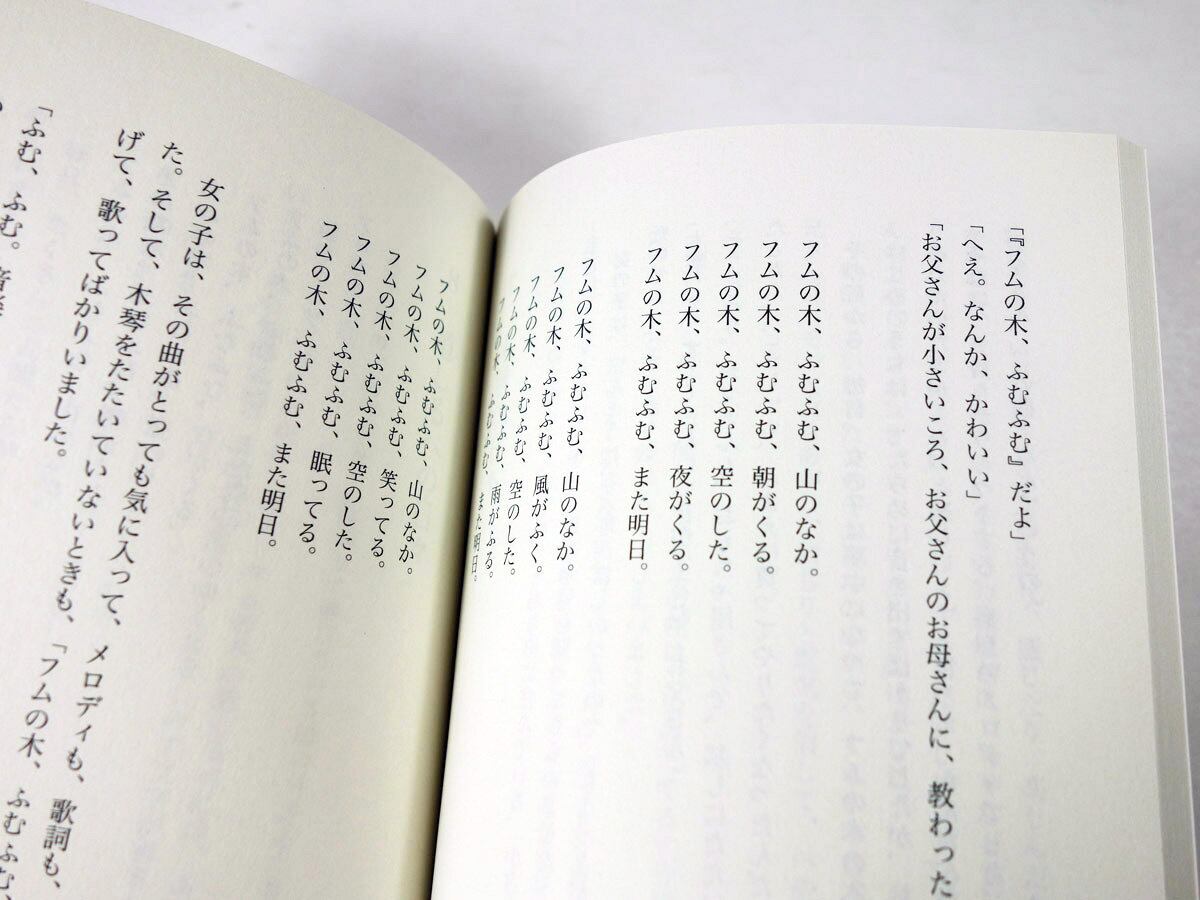 「『フムの木、ふむふむ』だよ」
「へえ。なんか、かわいい」
「お父さんが小さいころ、お父さんのお母さんに、教わった
フムの木、ふむふむ、山のなか。
フムの木、ふむふむ、朝がくる。
フムの木、ふむふむ、空のした。
フムの木、ふむふむ、夜がくる。
フムの木、ふむふむ、また明日。
フムの木、ふむふむ、山のなか。
フムの木、ふむふむ、風がふく。
フムの木、ふむふむ、空のした。
フムの木、ふむふむ、雨がふる。
フムの木、ふむふむ、また明日。
フムの木、ふむふむ、山のなか。
フムの木、ふむふむ、笑ってる。
フムの木、ふむふむ、空のした。
フムの木、ふむふむ、眠ってる。
フムの木、ふむふむ、また明日。
女の子は、その曲がとっても気に入って、メロディも、歌詞も、
た。そして、木琴をたたいていないときも、「フムの木、ふむふむ、
げて、歌ってばかりいました。
「ふむ、ふむ。音楽